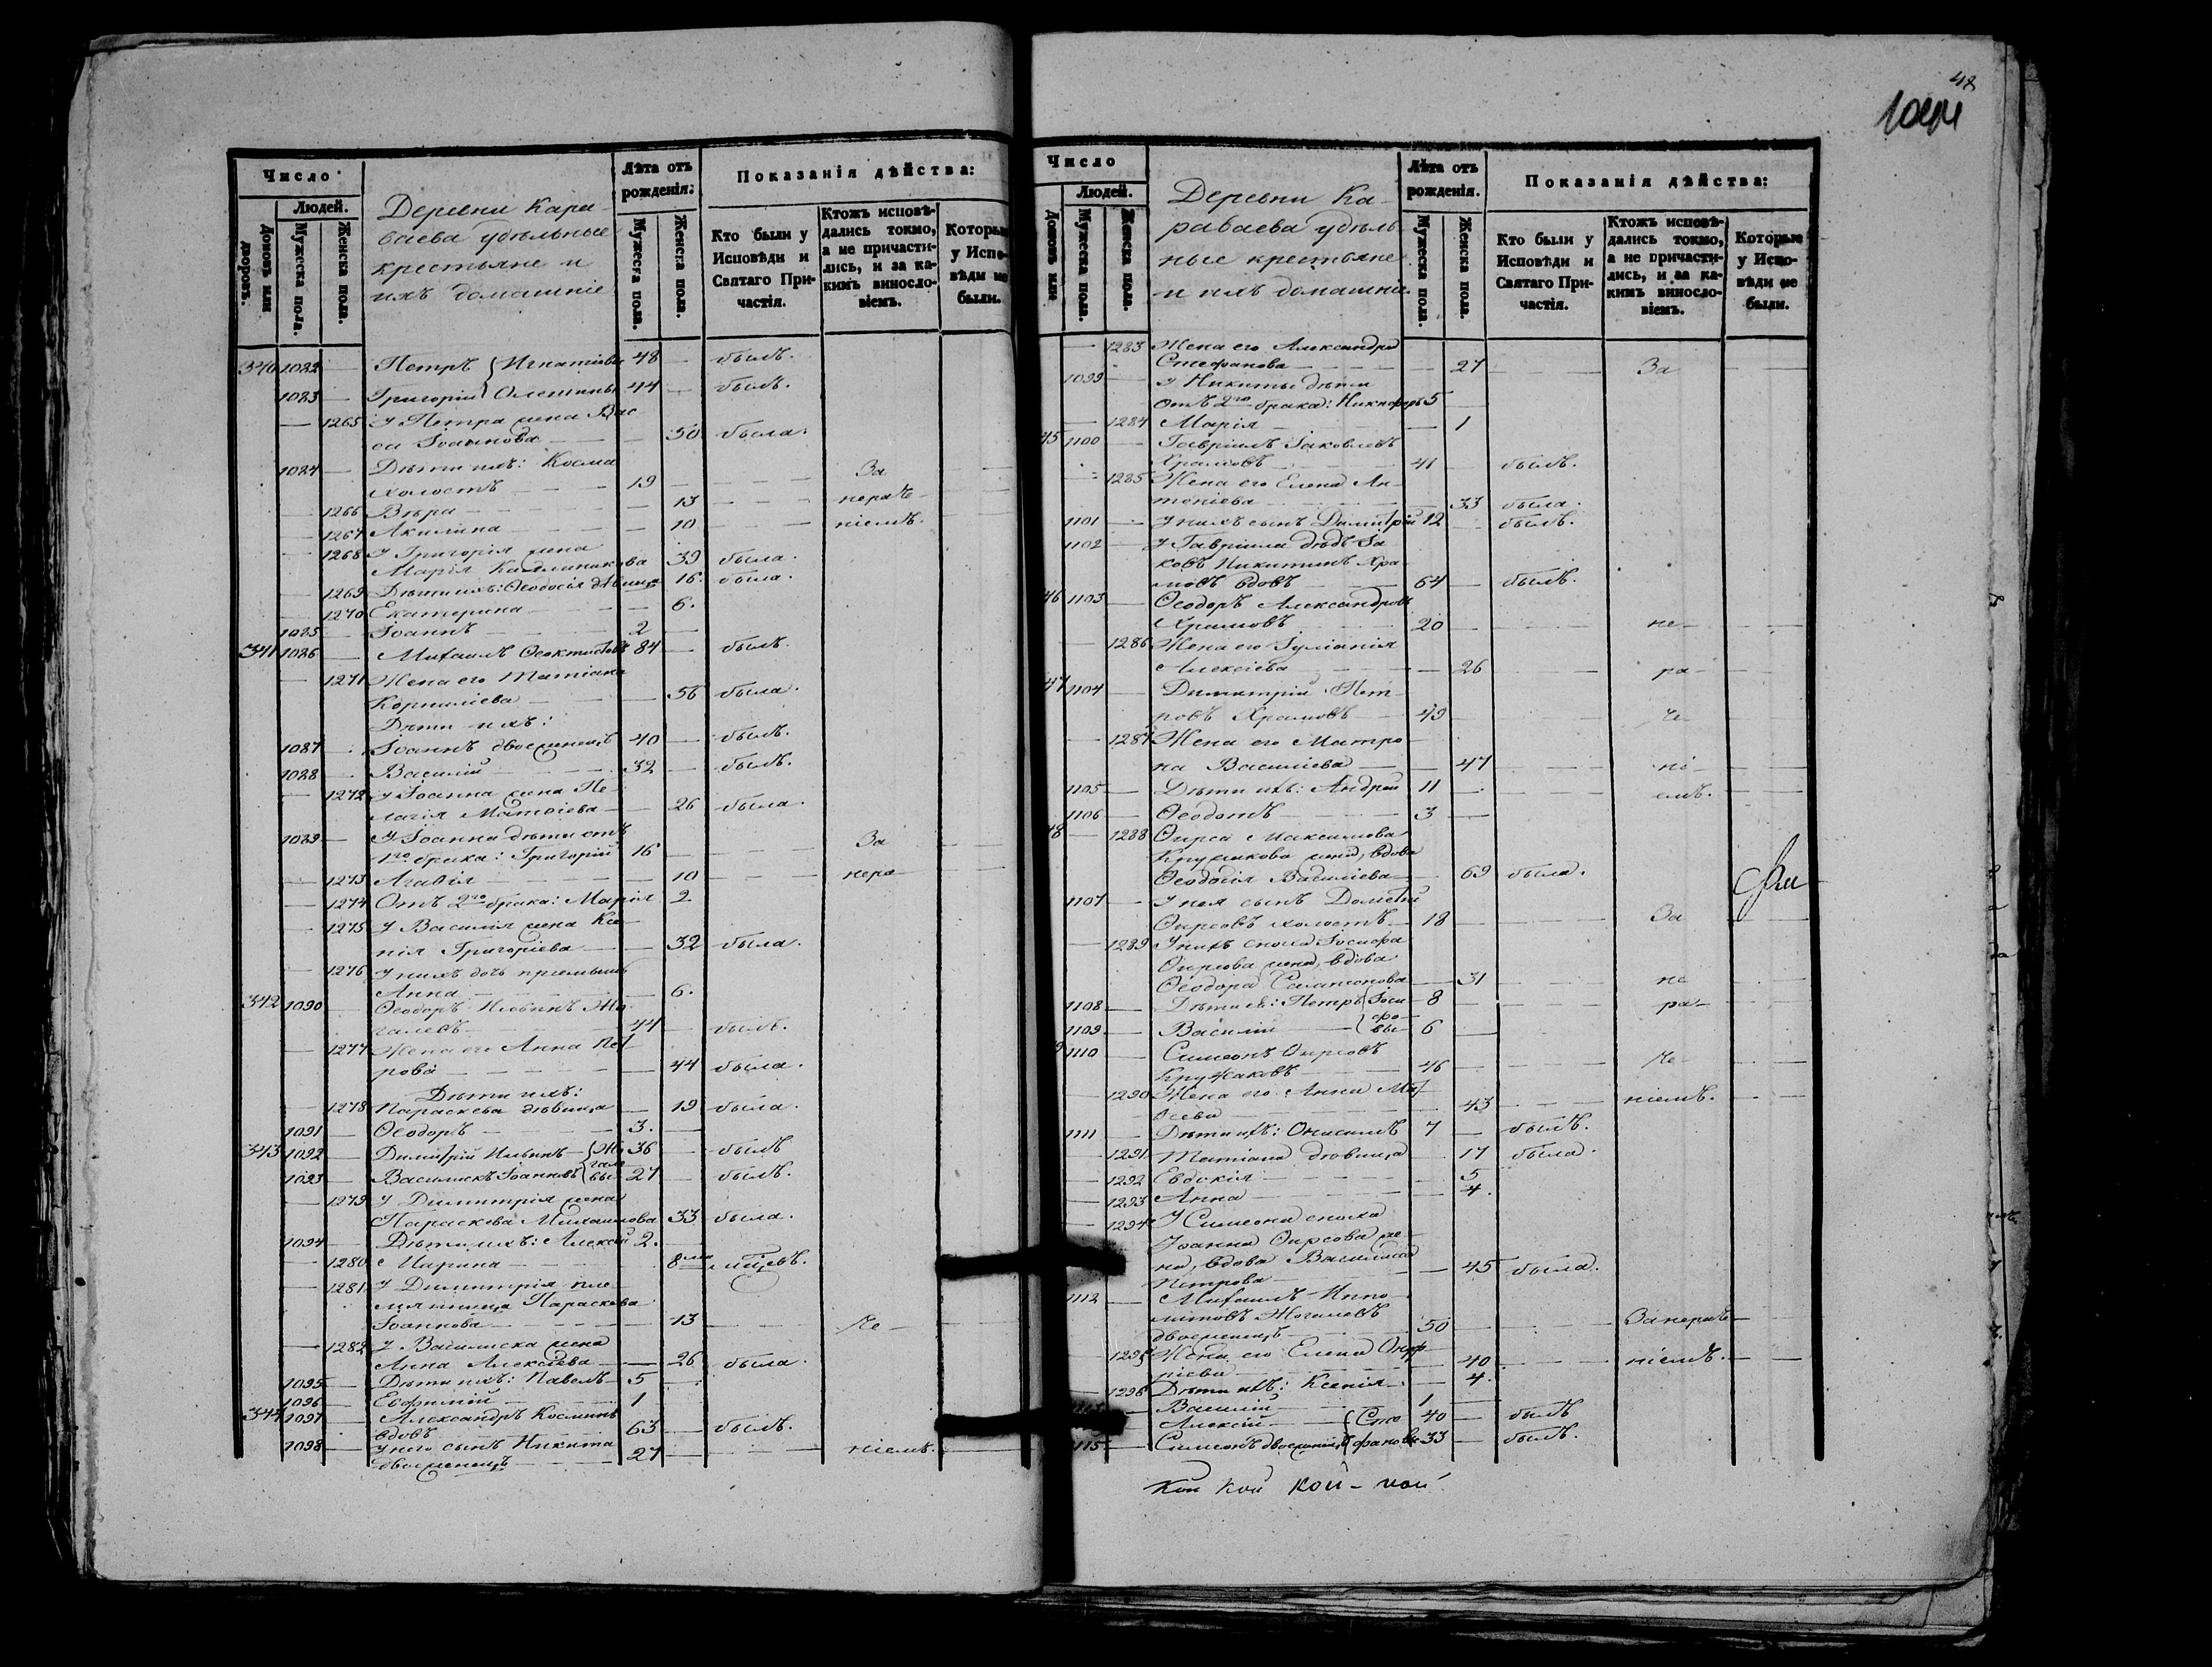 48
Число
Людей.
Домовъ или дворовъ.
Мужеска пола.
Женска пола.
Деревни Кара-
ваева удѣльные
крестьяне и
ихъ домашніе
Лѣта отъ рожденія:
Мужеска пола.
Женска пола.
Показанія дѣйства:
Кто были у Исповѣди и Святаго Причастія.
Ктожъ исповѣдались токмо, а не причастились, и за какимъ винословіемъ.
Которые у Исповѣди не были.
340 1082 — Петръ Игнатіевы 48 — былъ.
1083 — Григорій 44 — былъ.
— 1265 У Петра жена Вас
са Іоаннова — 50 была.
1084 — Дѣти ихъ: Косма
холостъ 19 — За
— 1266 Вѣра — 13 — нераче
— 1267 Акилина — 10 — ніемъ.
— 1268 У Григорія жена
Марія Каллиникова 39 была.
— 1269 Дѣти ихъ: Ѳеодосія дѣвица 16. была.
— 1270 Екатерина — 6.
1085 — Іоаннъ 2 —
341 1086 — Михаилъ Ѳеоктистовъ 84 — былъ.
— 1271 Жена его Татіана
Корниліева — 56 была.
Дѣти ихъ:
1087 — Іоаннъ двоеженецъ 40 — былъ.
1088 — Василій 32 — былъ.
— 1272 У Іоанна жена Пе
лагія Матѳіева — 26 была.
1089 — У Іоанна дѣти отъ
1го брака: Григорій 16 — За
— 1273 Агаѳія — 10 — нера
— 1274 Отъ 2го брака: Марія 2
— 1275 У Василія жена Ксе
нія Григоріева — 32 была.
— 1276 У нихъ дочь пріемышъ
Анна — 6.
342 1090 — Ѳеодоръ Ильинъ Жо
галевъ 44 — былъ.
— 1277 Жена его Анна Пет
рова — 44 была.
Дѣти ихъ:
— 1278 Параскева дѣвица — 19 была.
1091 — Ѳеодоръ 3. —
343 1092 — Димитрій Ильинъ Жо 36 — былъ
гале
1093 — Василискъ Іоанновъ вы 27 — былъ.
— 1279 У Димитрія жена
Параскева Михаилова 33 была.
1094 — Дѣти ихъ: Алексій 2.
— 1280 Ирина — 8 мѣсяцевъ.
— 1281 У Димитрія пле
мянница Параскева
Іоаннова — 13 — че
— 1282 У Василиска жена
Анна Алексіева — 26 была.
1095 — Дѣти ихъ: Павелъ 5 —
1096 — Евфимій 1
344 1097 — Александръ Косминъ
вдовъ 63 — былъ.
1098 — У него сынъ Никита
двоеженецъ 27 — ніемъ.
Число
Людей.
Домовъ или
Мужеска пола.
Женска пола.
Деревни Ка-
раваева удѣль
ные крестьяне
и ихъ домашніе.
Лѣта отъ рожденія.
Мужеска пола.
Женска пола.
Показанія дѣйства:
Кто были у Исповѣди и Святаго Причастія.
Ктожъ исповѣдались токмо, а не причастились, и за какимъ винословіемъ.
Которые у Исповѣди не были.
— 1283 Жена его Александра
Стефанова — 27 — За
1099 — У Никиты дѣти
отъ 2го брака: Никифоръ 5 —
— 1284 Марія — 1
45 1100 — Гавріилъ Іаковлевъ
Храмовъ 41 былъ.
— 1285 Жена его Елена Ан
тоніева — 33 была.
1101 — У нихъ сынъ Димитрій 12 былъ.
1102 — У Гавріила дядъ Іа
ковъ Никитинъ Хра
мовъ вдовъ 64 — былъ.
46 1103 — Ѳеодоръ Александровъ
Храмовъ 20 — не
— 1286 Жена его Іуліанія
Алексіева — 26 — ра
47 1104 — Димитрій Пет
ровъ Храмовъ 49 — че
— 1287 Жена его Матро
на Василіева — 47 — ні
1105 — Дѣти ихъ: Андрей 11 — емъ.
1106 — Ѳеодотъ 3 —
48 — 1288 Ѳирса Максимова
Кружакова жена, вдова
Ѳеодосія Василіева — 69 была.
1107 — У нея сынъ Дометій
Ѳирсовъ холостъ 18 — За
— 1289 У нихъ сноха Іосифа
Ѳирсова жена, вдова
Ѳеодора — 31 — не
1108 — Дѣти ея: Петръ Іоси 8 — ра
фо
1109 — Василій вы 6 —
1110 — Симеонъ Ѳирсовъ
Кружаковъ 46 — че
— 1290 Жена его Анна Мат
ѳеева 43 — ніемъ.
1111 — Дѣти ихъ: Онисимъ 7 — былъ.
— 1291 Татіана дѣвица — 17 была.
— 1292 Евдокія — 5
— 1293 Анна — 4.
— 1294 У Симеона сноха
Іоанна Ѳирсова же
на, вдова Василисса
Петрова — 45 была.
1112 — Михаилъ Иппо
литовъ Жогалевъ
двоеженецъ 50 — За нераче
— 1295 Жена его Елена Онуф
ріева — 40 — ніемъ.
— 1296 Дѣти ихъ: Ксенія — 4.
— Василій 1 —
— Алексій Сте 40 — былъ
1115 — Симеонъ двоеженецъ фановы 33 — былъ.
кои кои кои - кои